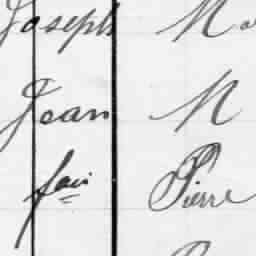 Joseph Ma
Jean M
fais Pierre